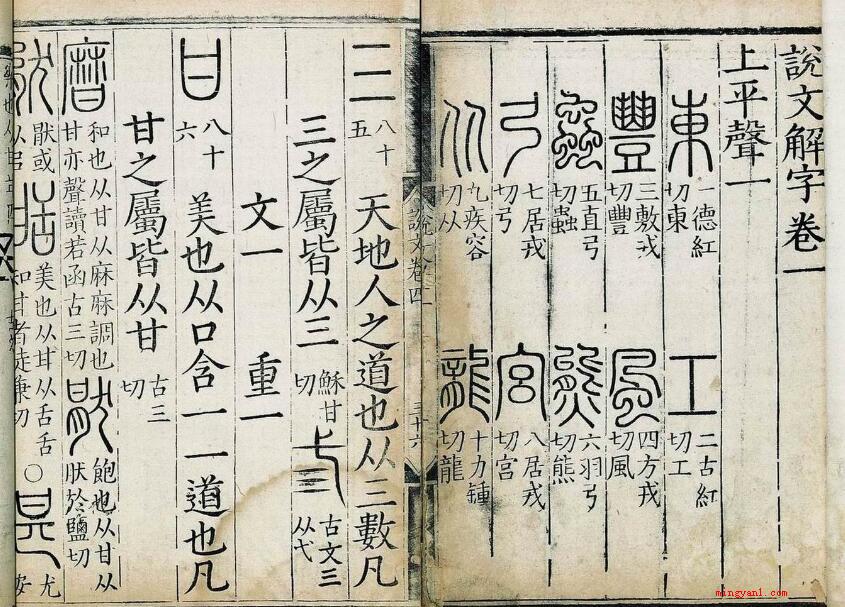 說文解字卷一
上平聲一
東 一德紅切東 工 二古紅切工
豐 三敷戎切豐 風 四方戎切風
蟲 五直弓切蟲 熊 六羽弓切熊
弓 七居戎切弓 宮 八居戎切宮
从 九疾容切从 龍 十力鍾切龍
說文卷四
三十六
三 八十五 天地人之道也从三數凡
三之屬皆从三 穌甘切 弎 古文三从弋
文一 重一
甘 八十六 美也从口含一一道也凡
甘之屬皆从甘 古三切
和也从甘从麻麻調也甘亦聲讀若函古三切 猒 飽也从甘从肰於鹽切
猒或从 美也从甘从舌舌知甘者徒兼切 ○ 甚 尤安
mingyan1.com